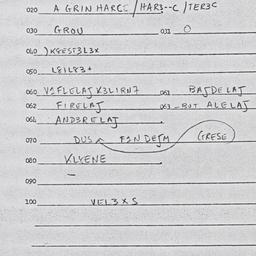 020 A GRIN HARCE / HAR3--C / TER3C
030 GROU 031 O
040 )K8EST3L3X
050 L8IL83+
060 V2FLELAJ X3LIRN7 061 BAJDELAJ
062 FIRELAJ 063 - BUT ALELAJ
064 AND3RELAJ
070 DUS ^ F2NDEJM (TRESE)
080 KLYENE
090
100 VEL3XS